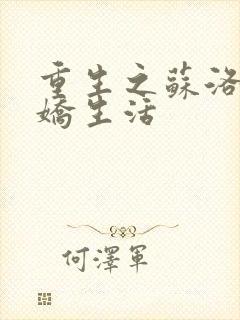 重生之蘇洛
嬌生活
何澤軍